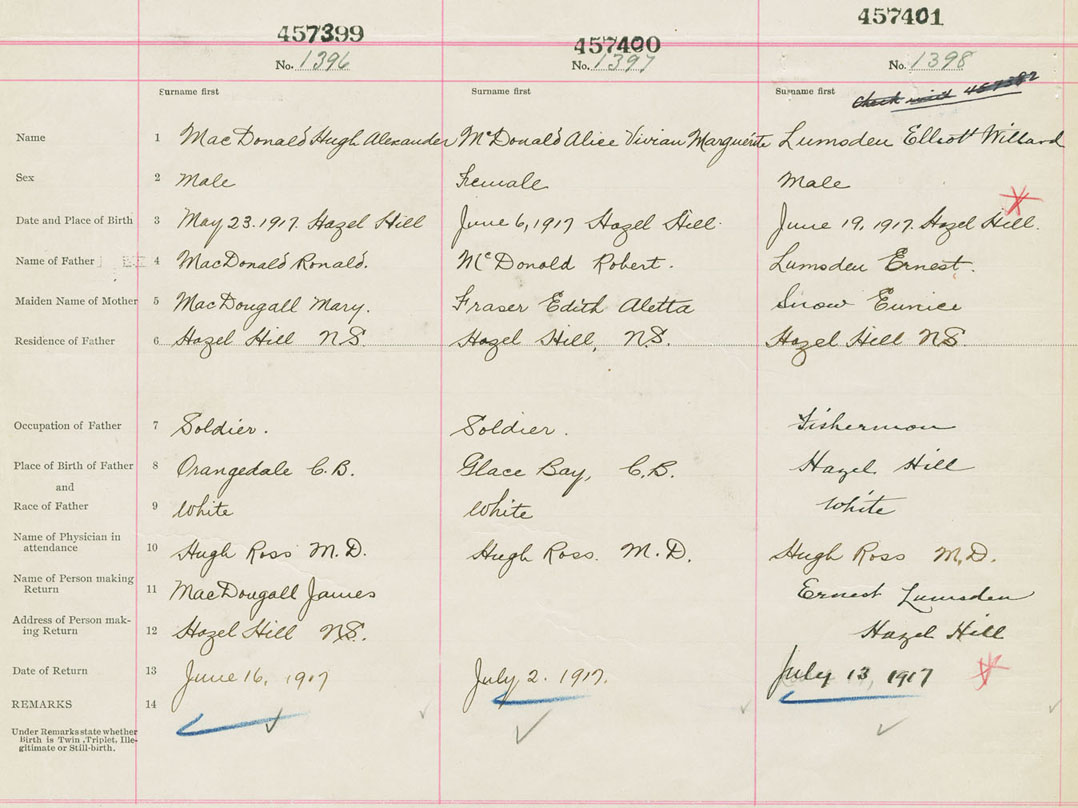 457399 457400 457401
No. 1396 No. 1397 No. 1398
Surname first Surname first Surname first
Check with 457382
Name 1 MacDonald Hugh Alexander McDonald Alice Vivian Marguerite Lumsden Elliott Willard
Sex 2 Male Female Male
Date and Place of Birth 3 May 23. 1917. Hazel Hill June 6, 1917 Hazel Hill. June 19, 1917. Hazel Hill.
Name of Father 4 MacDonald Ronald. McDonald Robert. Lumsden Ernest.
Maiden Name of Mother 5 MacDougall Mary. Fraser Edith Aletta Snow Eunice
Residence of Father 6 Hazel Hill N.S. Hazel Hill, N.S. Hazel Hill N.S.
Occupation of Father 7 Soldier. Soldier. Fisherman
Place of Birth of Father 8 Orangedale C.B. Glace Bay, C.B. Hazel Hill
and
Race of Father 9 White White White
Name of Physician in
attendance 10 Hugh Ross M.D. Hugh Ross. M.D. Hugh Ross M.D.
Name of Person making
Return 11 MacDougall James Ernest Lumsden
Address of Person mak-
ing Return 12 Hazel Hill N.S. Hazel Hill
Date of Return 13 June 16, 1917 July 2. 1917. July 13, 1917
REMARKS 14
Under Remarks state whether
Birth is Twin, Triplet, Ille-
gitimate or Still-birth.